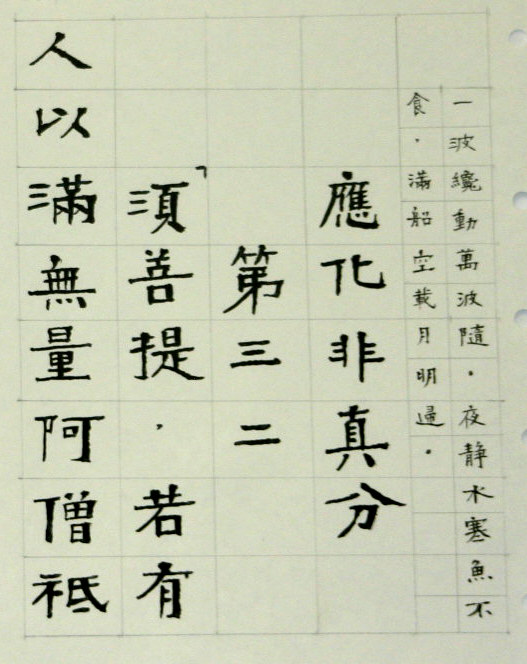 一波纔動萬波隨．夜靜水塞魚不
食．滿船空載月明過．
應化非真分
第三二
「須善提，若有
人以滿無量阿僧祇